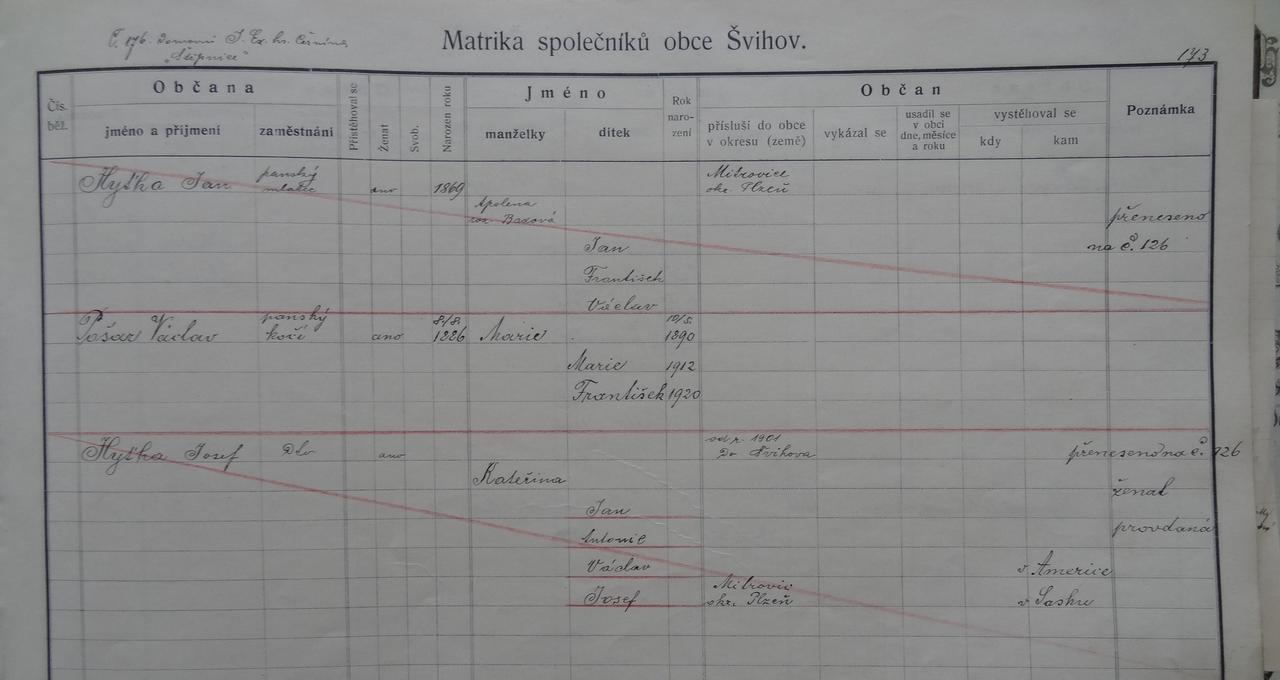 Č. 176. Domovní J. Ex. hr. Černína
"Štěpnice"
Matrika společníků obce Švihov.
173
Čís. běž.
Občana
jméno a příjmení
zaměstnání
Přistěhoval se
Ženat
Svob.
Narozen roku
Jméno
manželky
dítek
Rok naro- zení
Občan
přísluší do obce v okresu (země)
vykázal se
usadil se v obci dne, měsíce a roku
vystěhoval se
kdy
kam
Poznámka
Hyťha Jan panský mlatec ano 1869 Mitrovice okr. Plzeň
Apolena roz. Baxová přeneseno
Jan na č. 126
František
Václav
Pošar Václav panský kočí ano 8./8. 1886 Marie 10/5. 1890
Marie 1912
František 1920
Hyťha Josef Dto ano od r. 1901 Do Švihova přeneseno na č. 126
Kateřina ženat
Jan
Antonie provdaná
Václav v Americe
Josef Mitrovic okr. Plzeň v Sasku